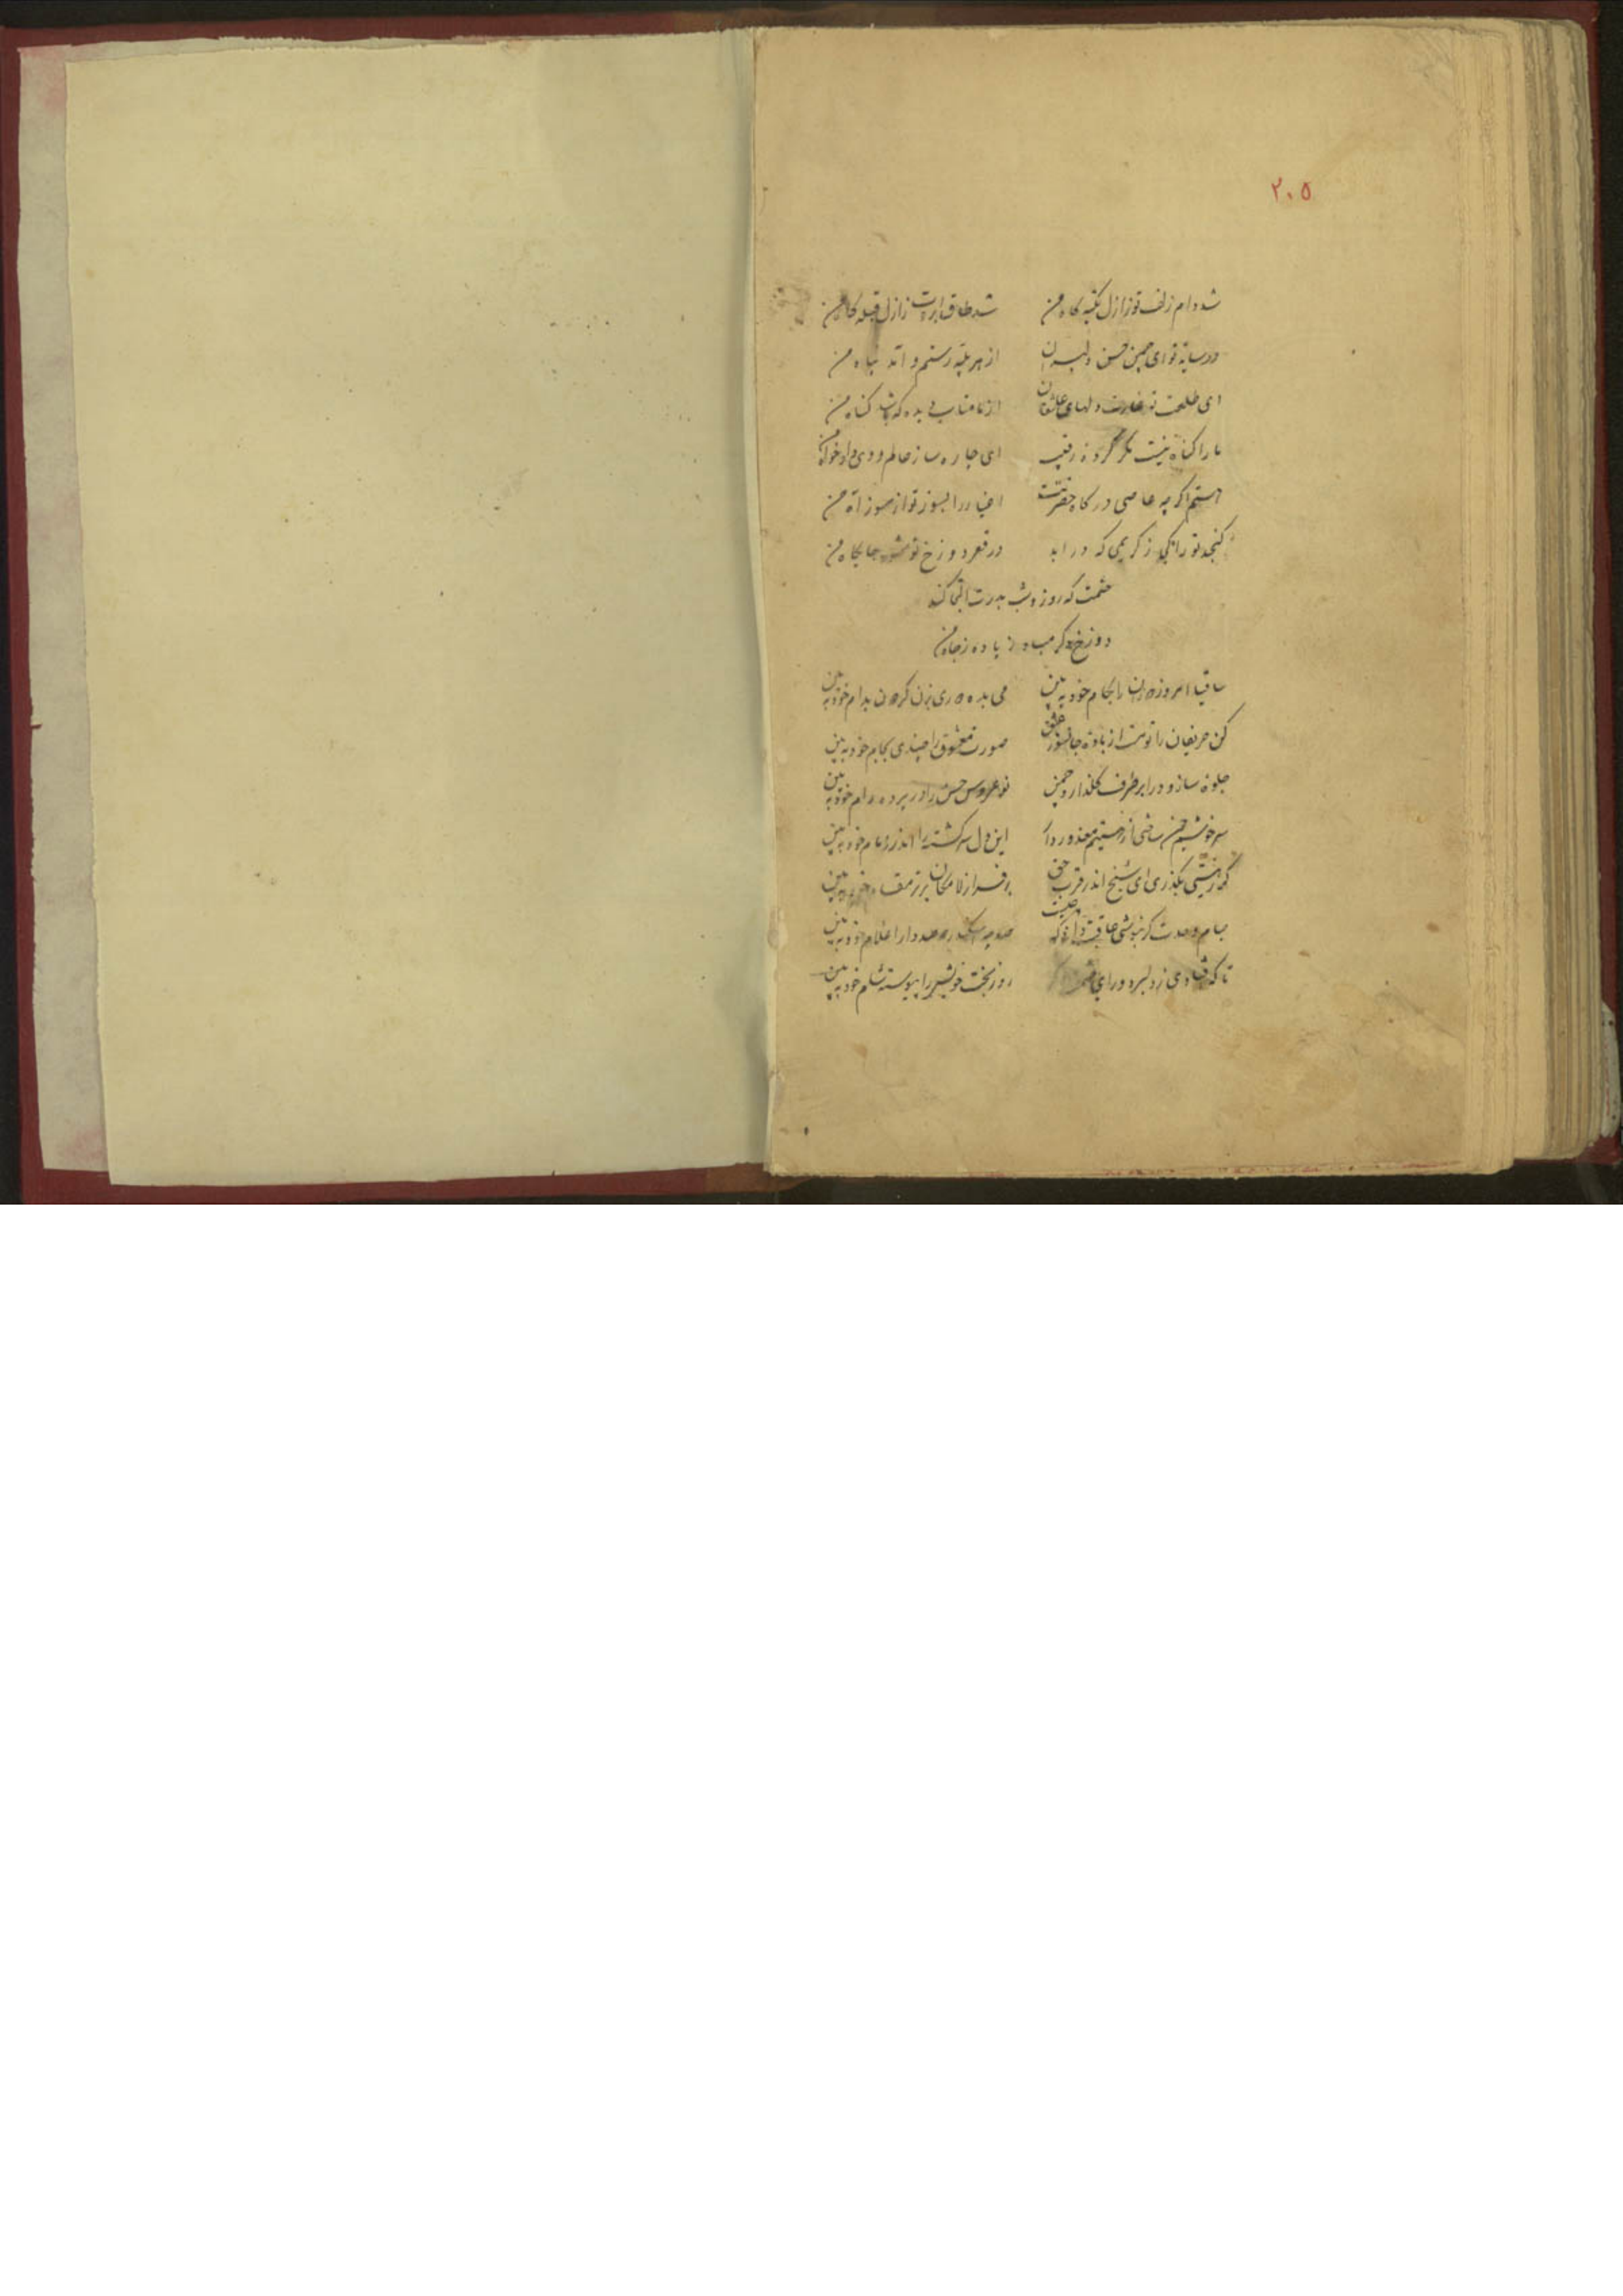 ۲۰۵
شد دام زلف تو ز ازل تکیه گاه من شد طاق ابروت ز ازل قبله گاه من
در سایه تو ای چمن حسن دلبران از هر بلیه رستم و اند پناه من
ای طلعت تو غارت دلهای عاشقان از ما متاب بده که باشد گناه من
ما را گناه نیست مگر گرونه رقیب ای چاره ساز عالم و وی داد خواه من
هستم اگر چه عاصی درگاه حضرتت اغیار را بسوز تو از سوز آه من
گنجد تو را نکی ز کریمی که در ابد در قعر دوزخ تو شود جایگاه من
حشمت که روز و شب بدرت التجا کند
دوزخ دگر مباد زیاده ز جاه من
ساقیا امروز دوران را بکام خود به بین می بده دوری بزن گردون بدام خود به بین
کن حریفان را تو مست از باده جانسوز عشق صورت معشوق را چندی بجام خود به بین
جلوه ساز و درا بر طرف گلذار و چمن نو عروس حسن را در پرده رام خود به بین
سرخوشیم من ساختی از مستیم معذور دار این دل سرگشته را اندر دام خود به بین
گر ز هستی بگذری ای شیخ اندر قرب حق برفراز لامکان برتر مقام خود به بین
جام وحدت گر بنوشی عاقبت صد چه اسکندر صد دارا غلام خود به بین
تا که شادی ز دلبر دورای حشمت روز بخت خویش را پیوسته شام خود به بین